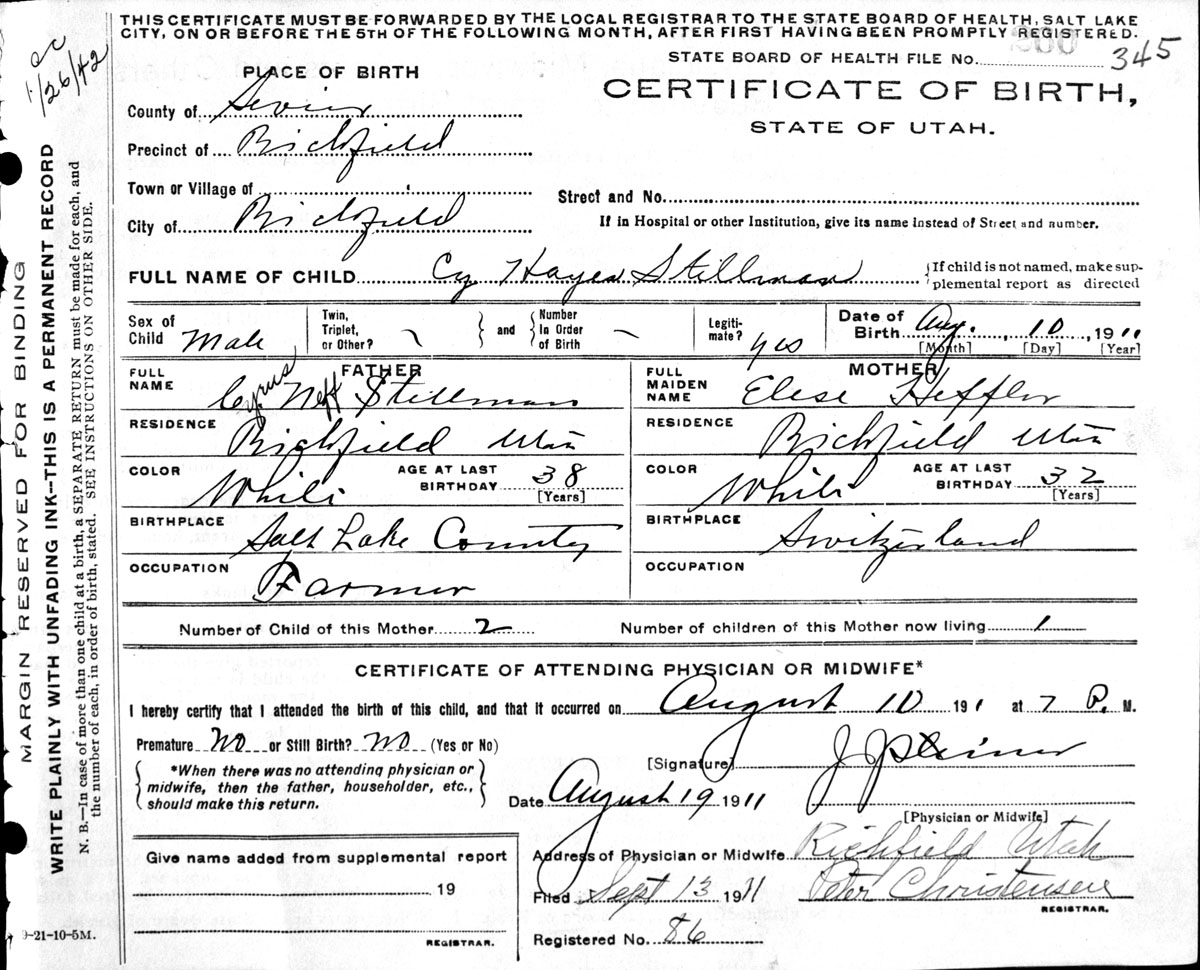 THIS CERTIFICATE MUST BE FORWARDED BY THE LOCAL REGISTRAR TO THE STATE BOARD OF HEALTH, SALT LAKE
CITY, ON OR BEFORE THE 5TH OF THE FOLLOWING MONTH, AFTER FIRST HAVING BEEN PROMPTLY REGISTERED.
1/26/42
STATE BOARD OF HEALTH FILE No. 345
PLACE OF BIRTH
CERTIFICATE OF BIRTH,
STATE OF UTAH.
County of Sevier
Precinct of Richfield
Town or Village of
Street and No.
City of Richfield
If in Hospital or other Institution, give its name instead of Street and number.
FULL NAME OF CHILD Cy Hayes Stillman
{If child is not named, make sup-
plemental report as directed
Sex of Child Male
Twin, Triplet, or Other?
and
Number In Order of Birth
Legiti- mate? yes
Date of Birth Aug. 10, 1911
[Month] [Day] [Year]
FATHER
FULL NAME Cyrus Neff Stillman
RESIDENCE Richfield Utah
COLOR White
AGE AT LAST BIRTHDAY 38
[Years]
BIRTHPLACE Salt Lake County
OCCUPATION Farmer
MOTHER
FULL MAIDEN NAME Elese Heffler
RESIDENCE Richfield Utah
COLOR White
AGE AT LAST BIRTHDAY 32
[Years]
BIRTHPLACE Switzerland
OCCUPATION
Number of Child of this Mother 2 Number of children of this Mother now living 1
CERTIFICATE OF ATTENDING PHYSICIAN OR MIDWIFE*
I hereby certify that I attended the birth of this child, and that it occurred on August 10 191 at 7 P. M.
Premature No or Still Birth? No (Yes or No)
[Signature] J J Steiner
{*When there was no attending physician or
midwife, then the father, householder, etc.,
should make this return.}
Date August 19 1911
[Physician or Midwife]
Give name added from supplemental report
19
REGISTRAR.
Address of Physician or Midwife Richfield Utah
Filed Sept 13 1911 Peter Christensen
REGISTRAR.
Registered No. 86
9-21-10-5M.
MARGIN RESERVED FOR BINDING
WRITE PLAINLY WITH UNFADING INK--THIS IS A PERMANENT RECORD
N. B.—In case of more than one child at a birth, a SEPARATE RETURN must be made for each, and
the number of each, in order of birth, stated. SEE INSTRUCTIONS ON OTHER SIDE.